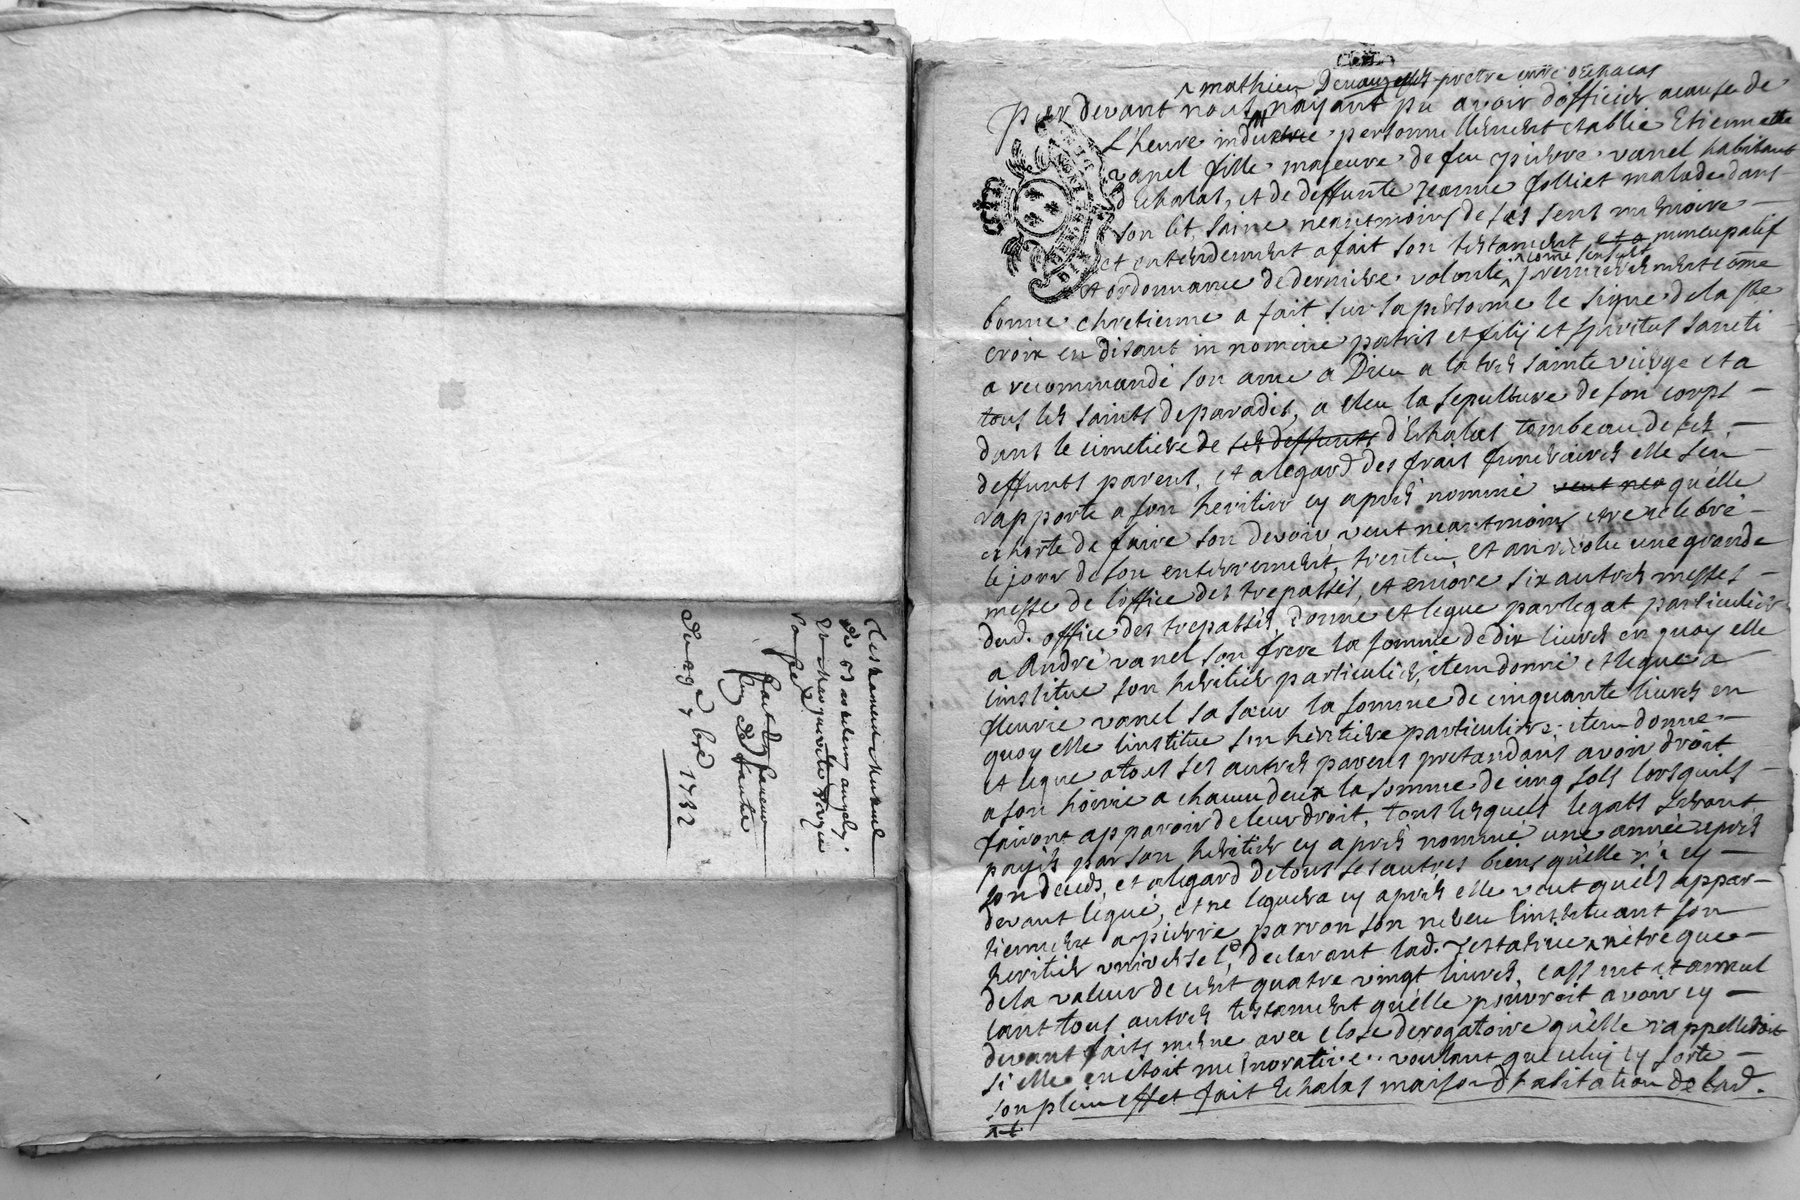 Testament mutuel
de
Et Margueritte
du 29e 7bre 1732
^ mathieu prêtre curé d'Echalas
par devant nous n'ayant pu avoir d'officier acause de
L'heure indue personnellement establie Etiennette
vanel fille majeure de feu pierre vanel habitant
d'Echalas, et de deffunte jeanne Jolliet malade dans
son lit saine neantmoins de ses sens memoire
et entendement a fait son testament et a nuncupatif
et ordonnance de derniere volonté, ^ come sensuit premierement come
bonne chretienne a fait sur sa personne le signe de la ste
croix en disant in nomine patris et filij et spiritus sancti
a recommandé son ame a Dieu a la tres sainte vierge et a
tous les saints de paradis, a eleu la sepulture de son corps
dans le cimetiere de ses deffunts d'Echalas tombeau de ses
deffunts parens, et a legard des frais funeraires elle s'en
rapporte a son heritier cy apres nommé veut neo qu'elle
exhorte de faire son devoir veut neantmoins etre celebré
le jour de son enterrement, trentin, et an revolu une grande
messe de l'office des trepassés, et encore six autres messes
dud. office des trepassés, donne et legue par legat particulier
a André vanel son frere la somme de dix livres en quoy elle
l'institue son heritier particulier, item donne et legue a
fleurie vanel sa sœur la somme de cinquante livres en
quoy elle l'institue son heritiere particuliere, item donne
et legue a tous ses autres parens pretendans avoir droit
a son hoirie a chacun deux la somme de cinq sols lorsquils
fairont apparoir de leur droit, tous lesquels legats seront
payés par son heritier cy apres nommé une année apres
son deceds, et a legard de tous ses autres biens qu'elle n'a cy
devant legué, et ne leguera cy apres elle veut quils appar-
tiennent a pierre parron son neveu l'instituant son
heritier universel, declarant lad. Testatrice n'etre que
de la valeur de cent quatre vingt livres, cassant et annul
lant tous autres testament qu'elle pouvroit avoir cy
devant faits meme avec close derogatoire qu'elle rappelleroit
si elle en etoit memorative voulant que celuy cy sorte
son plein effet fait Echalas maison d'habitation de lad.